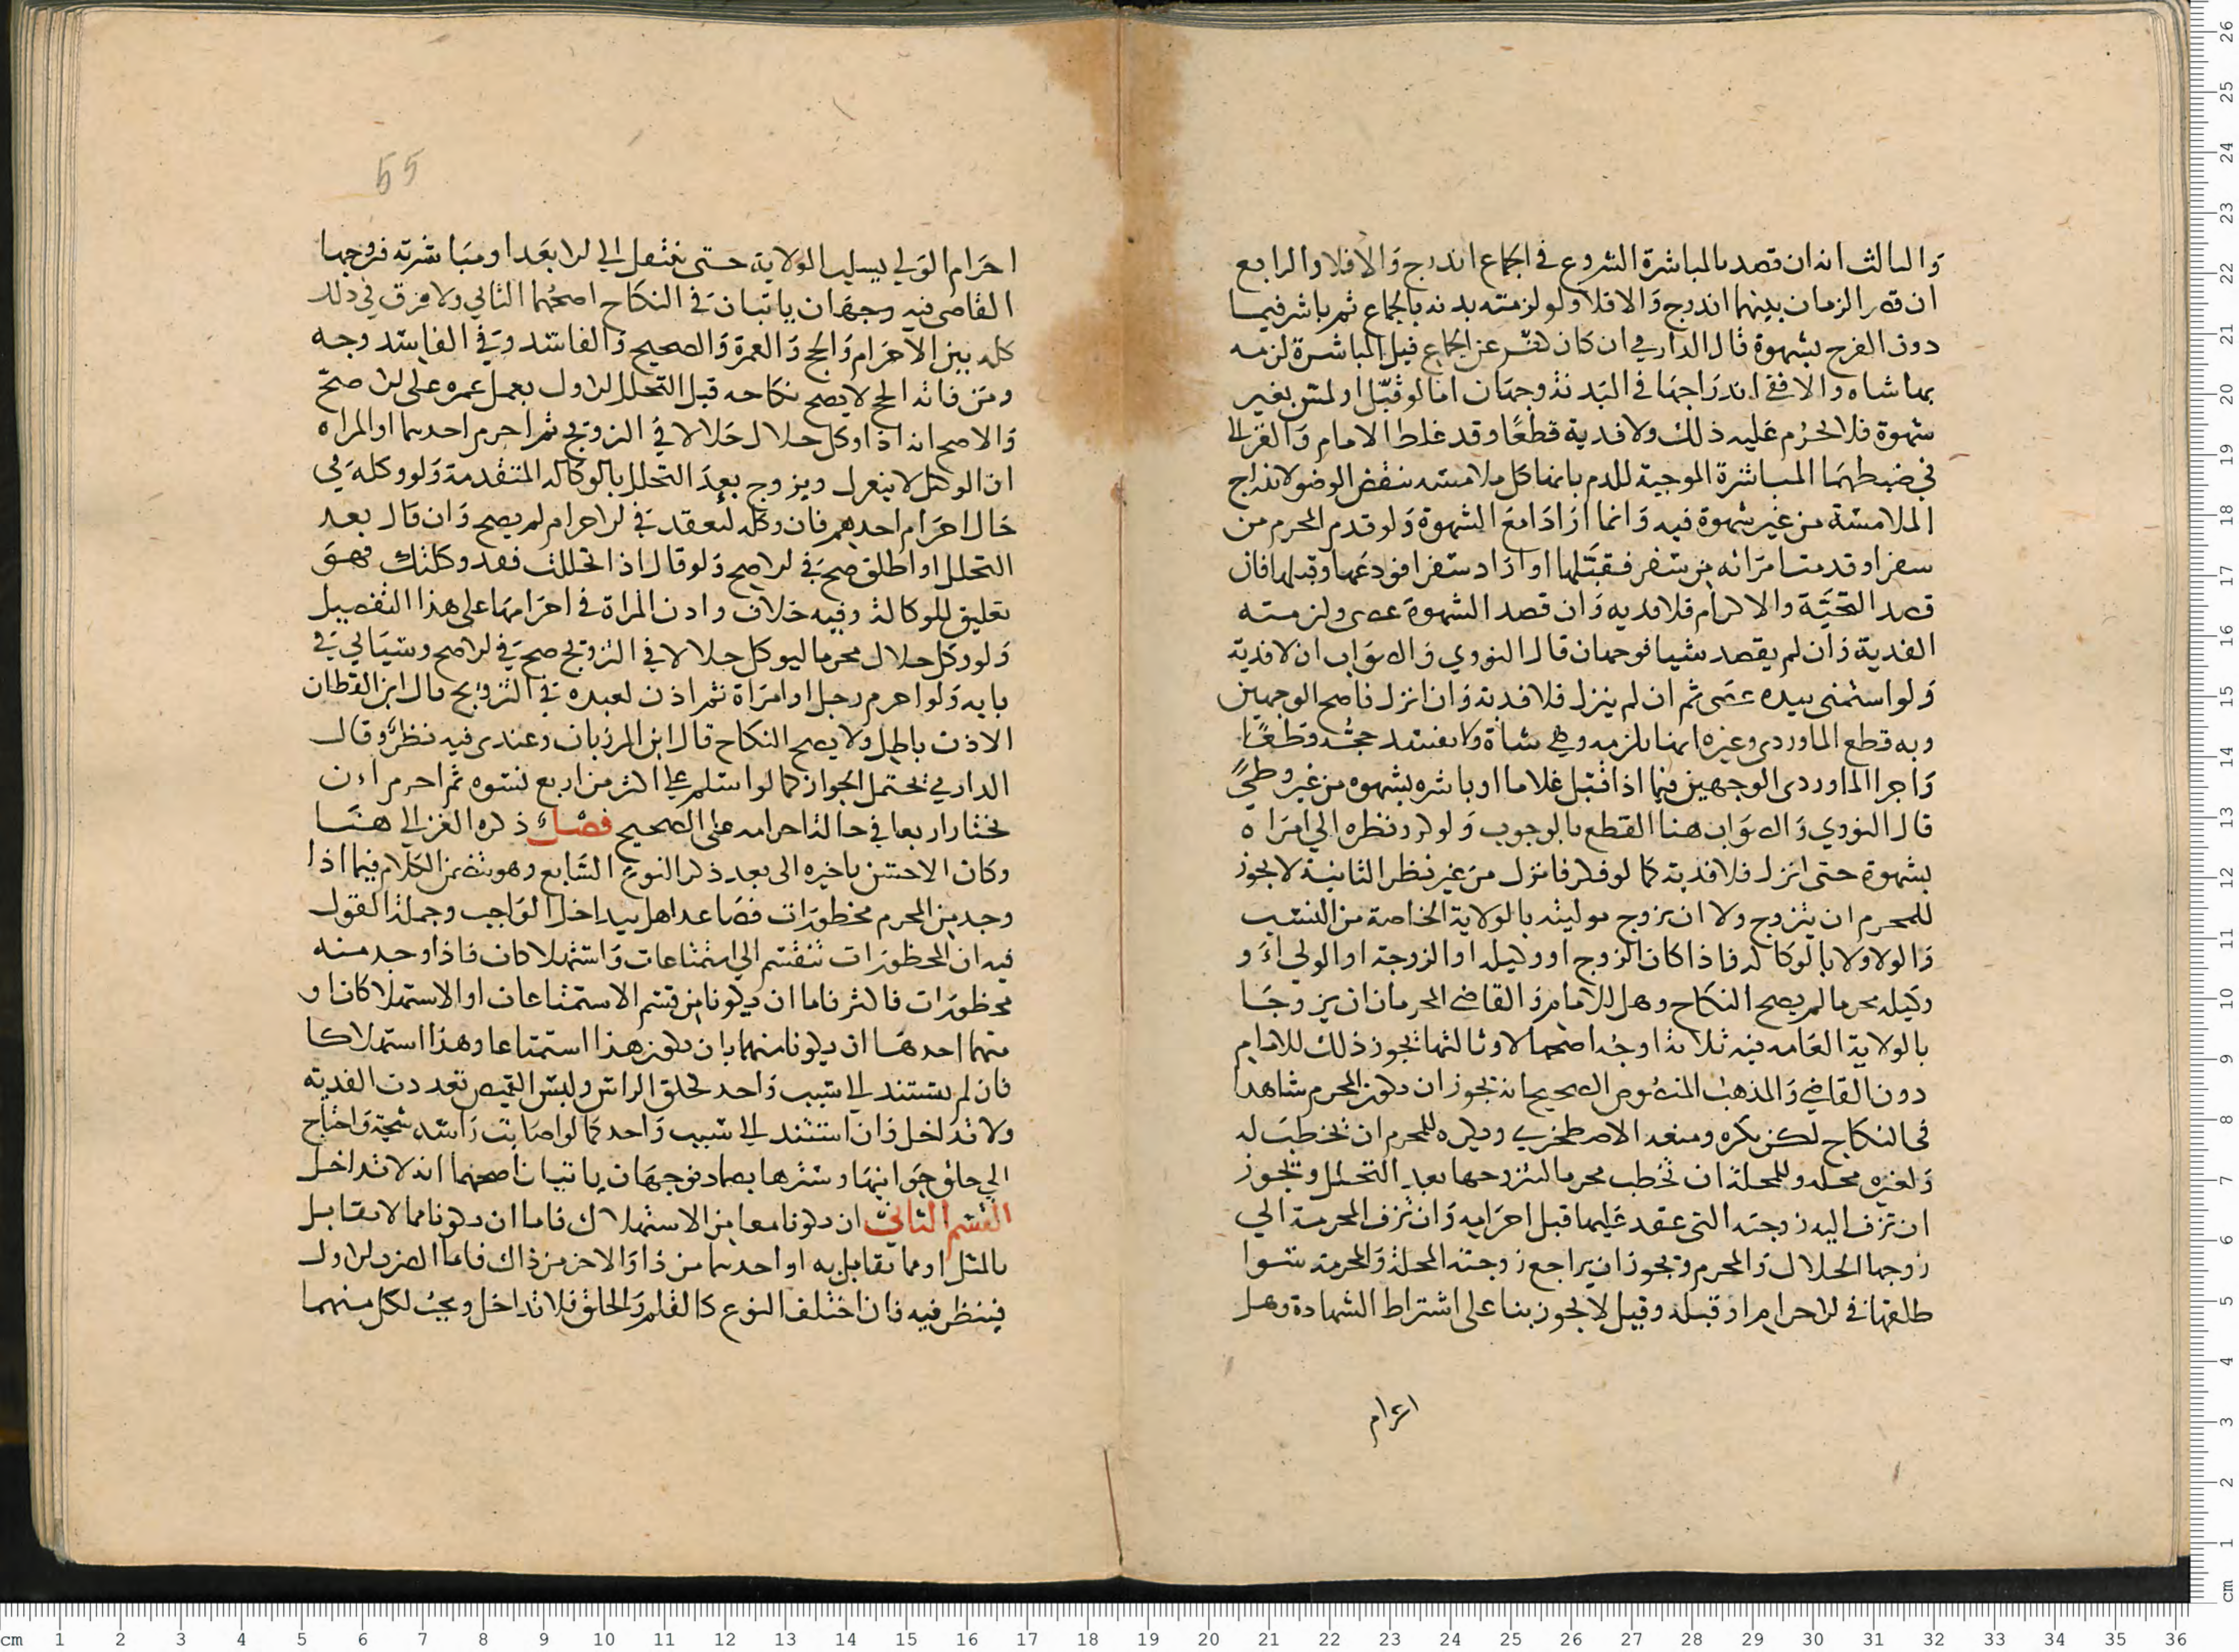 والثالث انه ان قصد بالمباشرة الشروع في الجماع اندرج والا فلا والرابع
ان قصر الزمان بينهما اندرج والا فلا ولو لزمته بدنه بالجماع ثم باشر فيما
دون الفرج بشهوة قال الدارمي ان كان كفر عن الجماع قبل المباشرة لزمه
بها شاه والا ففي اندراجها في البدنة وجهان اما لو قبل او لمس بغير
شهوة فلا يحرم عليه ذلك ولا فدية قطعا وقد غلط الامام والغزالي
في ضبطهما المباشرة الموجبة للدم بانها كل ملامسه تنقض الوضو لاندراج
الملامسة من غير شهوة فيه وانما ارادا مع الشهوة ولو قدم المحرم من
سفر او قدمت امراته من سفر فقبلها او اراد سفرا فودعها وقبلها فان
قصد التحية والاكرام فلا فديه وان قصد الشهوة عصى ولزمته
الفدية وان لم يقصد شيا فوجهان قال النووي والصواب ان لا فدية
ولو استمنى بيده عصى ثم ان لم ينزل فلا فدية وان انزل فاصح الوجهين
وبه قطع الماوردي وغيره انها تلزمه وهي شاة ولا يفسد حجه قطعا
واجرا الماوردي الوجهين فيما اذا قبل غلاما او باشره بشهوه من غير وطيٍ
قال النووي والصواب هنا القطع بالوجوب ولو كرر نظره الي امراه
بشهوة حتى انزل فلا فدية كما لو فكر فانزل من غير نظر الثانية لا يجوز
للمحرم ان يتزوج ولا ان يزوج موليته بالولاية الخاصة من النسب
والولا ولا بالوكاله فاذا كان الزوج او وكيله او الزوجة او الولي او
وكيله محرما لم يصح النكاح وهل للامام والقاضي المحرمان ان يزوجا
بالولاية العامه فيه ثلاثة اوجه اصحها لا وثالثها يجوز ذلك للامام
دون القاضي والمذهب المنصوص الصحيح انه يجوز ان يكون المحرم شاهدا
في النكاح لكن يكره ومنعه الاصطخري ويكره للمحرم ان يخطب له
ولغيره محله وللمحلة ان تخطب محرما لتزوجها بعد التحلل ويجوز
ان تزف اليه زوجته التي عقد عليها قبل احرامه وان تزف المحرمة الي
زوجها الحلال والمحرم ويجوز ان يراجع زوجته المحلة والمحرمة سوا
طلقها في الاحرام او قبله وقيل لا يجوز بنا على اشتراط الشهادة وهل
احرام
55
احرام الولي يسلب الولاية حتى تنتقل الي الابعد او مباشرته فزوجها
القاضي فيه وجهان ياتيان في النكاح اصحهما الثاني ولا فرق في ذلك
كله بين الاحرام والحج والعمرة والصحيح والفاسد وفي الفاسد وجه
ومن فاته الحج لا يصح نكاحه قبل التحلل الاول بعمل عمره على الاصح
والاصح انه اذا وكل حلال حلالا في التزويج ثم احرم احدهما او المراه
ان الوكيل لا ينعزل ويزوج بعد التحلل بالوكاله المتقدمة ولو وكله في
حال احرام احدهم فان وكله ليعقد في الاحرام لم يصح وان قال بعد
التحلل او اطلق صح في الاصح ولو قال اذا تحللت فقد وكلتك فهو
تعليق للوكالة وفيه خلاف واذن المراة في احرامها على هذا التفصيل
ولو وكل حلال محرما ليوكل حلالا في التزويج صح في الاصح وسياتي في
بابه ولو احرم رجل او امراة ثم اذن لعبده في التزويج قال ابن القطان
الاذن باطل ولا يصح النكاح قال ابن المرزبان وعندي فيه نظر وقال
الدارمي يحتمل الجواز كما لو اسلم على اكثر من اربع نسوه ثم احرم له ان
يختار اربعا في حالة احرامه على الصحيح فصل ذكره الغزالي هنا
وكان الاحسن تاخيره الى بعد ذكر النوع السابع وهو يتضمن الكلام فيما اذا
وجد من المحرم محظورات فصاعدا هل يتداخل الواجب وجملة القول
فيه ان المحظورات تنقسم الي استمتاعات واستهلاكات فاذا وجد منه
محظورات فاكثر فاما ان يكونا من قسم الاستمتاعات او الاستهلاكات او
منهما احدها ان يكونا منهما بان يكون هذا استمتاعا وهذا استهلاكا
فان لم يستند الي سبب واحد كحلق الراس ولبس القميص تعددت الفدية
ولا تداخل وان استند الي سبب واحد كما لو اصابت راسه شجة واحتاج
الي حلق جوانبها وسترها بضماد فوجهان ياتيان اصحهما انه لا تداخل
القسم الثاني ان يكونا معا من الاستهلاك فاما ان يكونا مما لا يقابل
بالمثل او مما يقابل به او احدهما من ذا والاخر من ذاك فاما الضرب الاول
فينظر فيه فان اختلف النوع كالقلم والحلق فلا تداخل ويجب لكل منهما